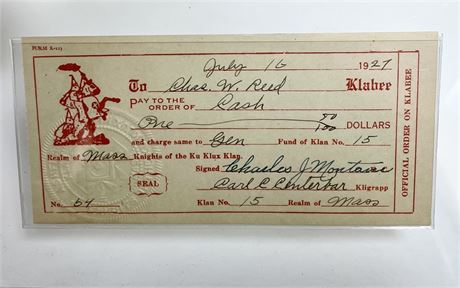 FORM K-115
July 16 1927
To Chas. W. Reed Klabee
PAY TO THE
ORDER OF Cash
One 50/100 DOLLARS
and charge same to Gen Fund of Klan No. 15
Realm of Mass Knights of the Ku Klux Klan.
Signed Charles J
SEAL Carl C Kligrapp
No. 64 Klan No. 15 Realm of Mass
OFFICIAL ORDER ON KLABEE